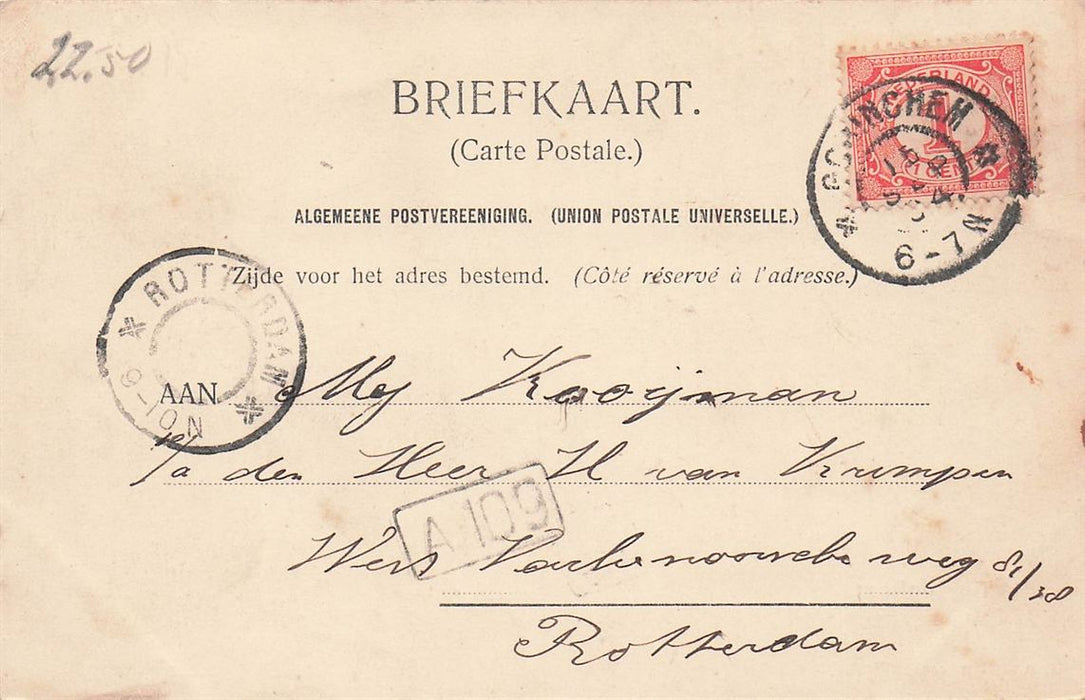 22.50
BRIEFKAART.
(Carte Postale.)
ALGEMEENE POSTVEREENIGING. (UNION POSTALE UNIVERSELLE.)
Zijde voor het adres bestemd. (Côté réservé à l'adresse.)
NEDERLAND
1
1 CENT
GORINCHEM
6-7 N
ROTTERDAM
9-10N
AAN Mej Kooijman
p/a den Heer H van Krimpen
A 109
weg 81/38
Rotterdam